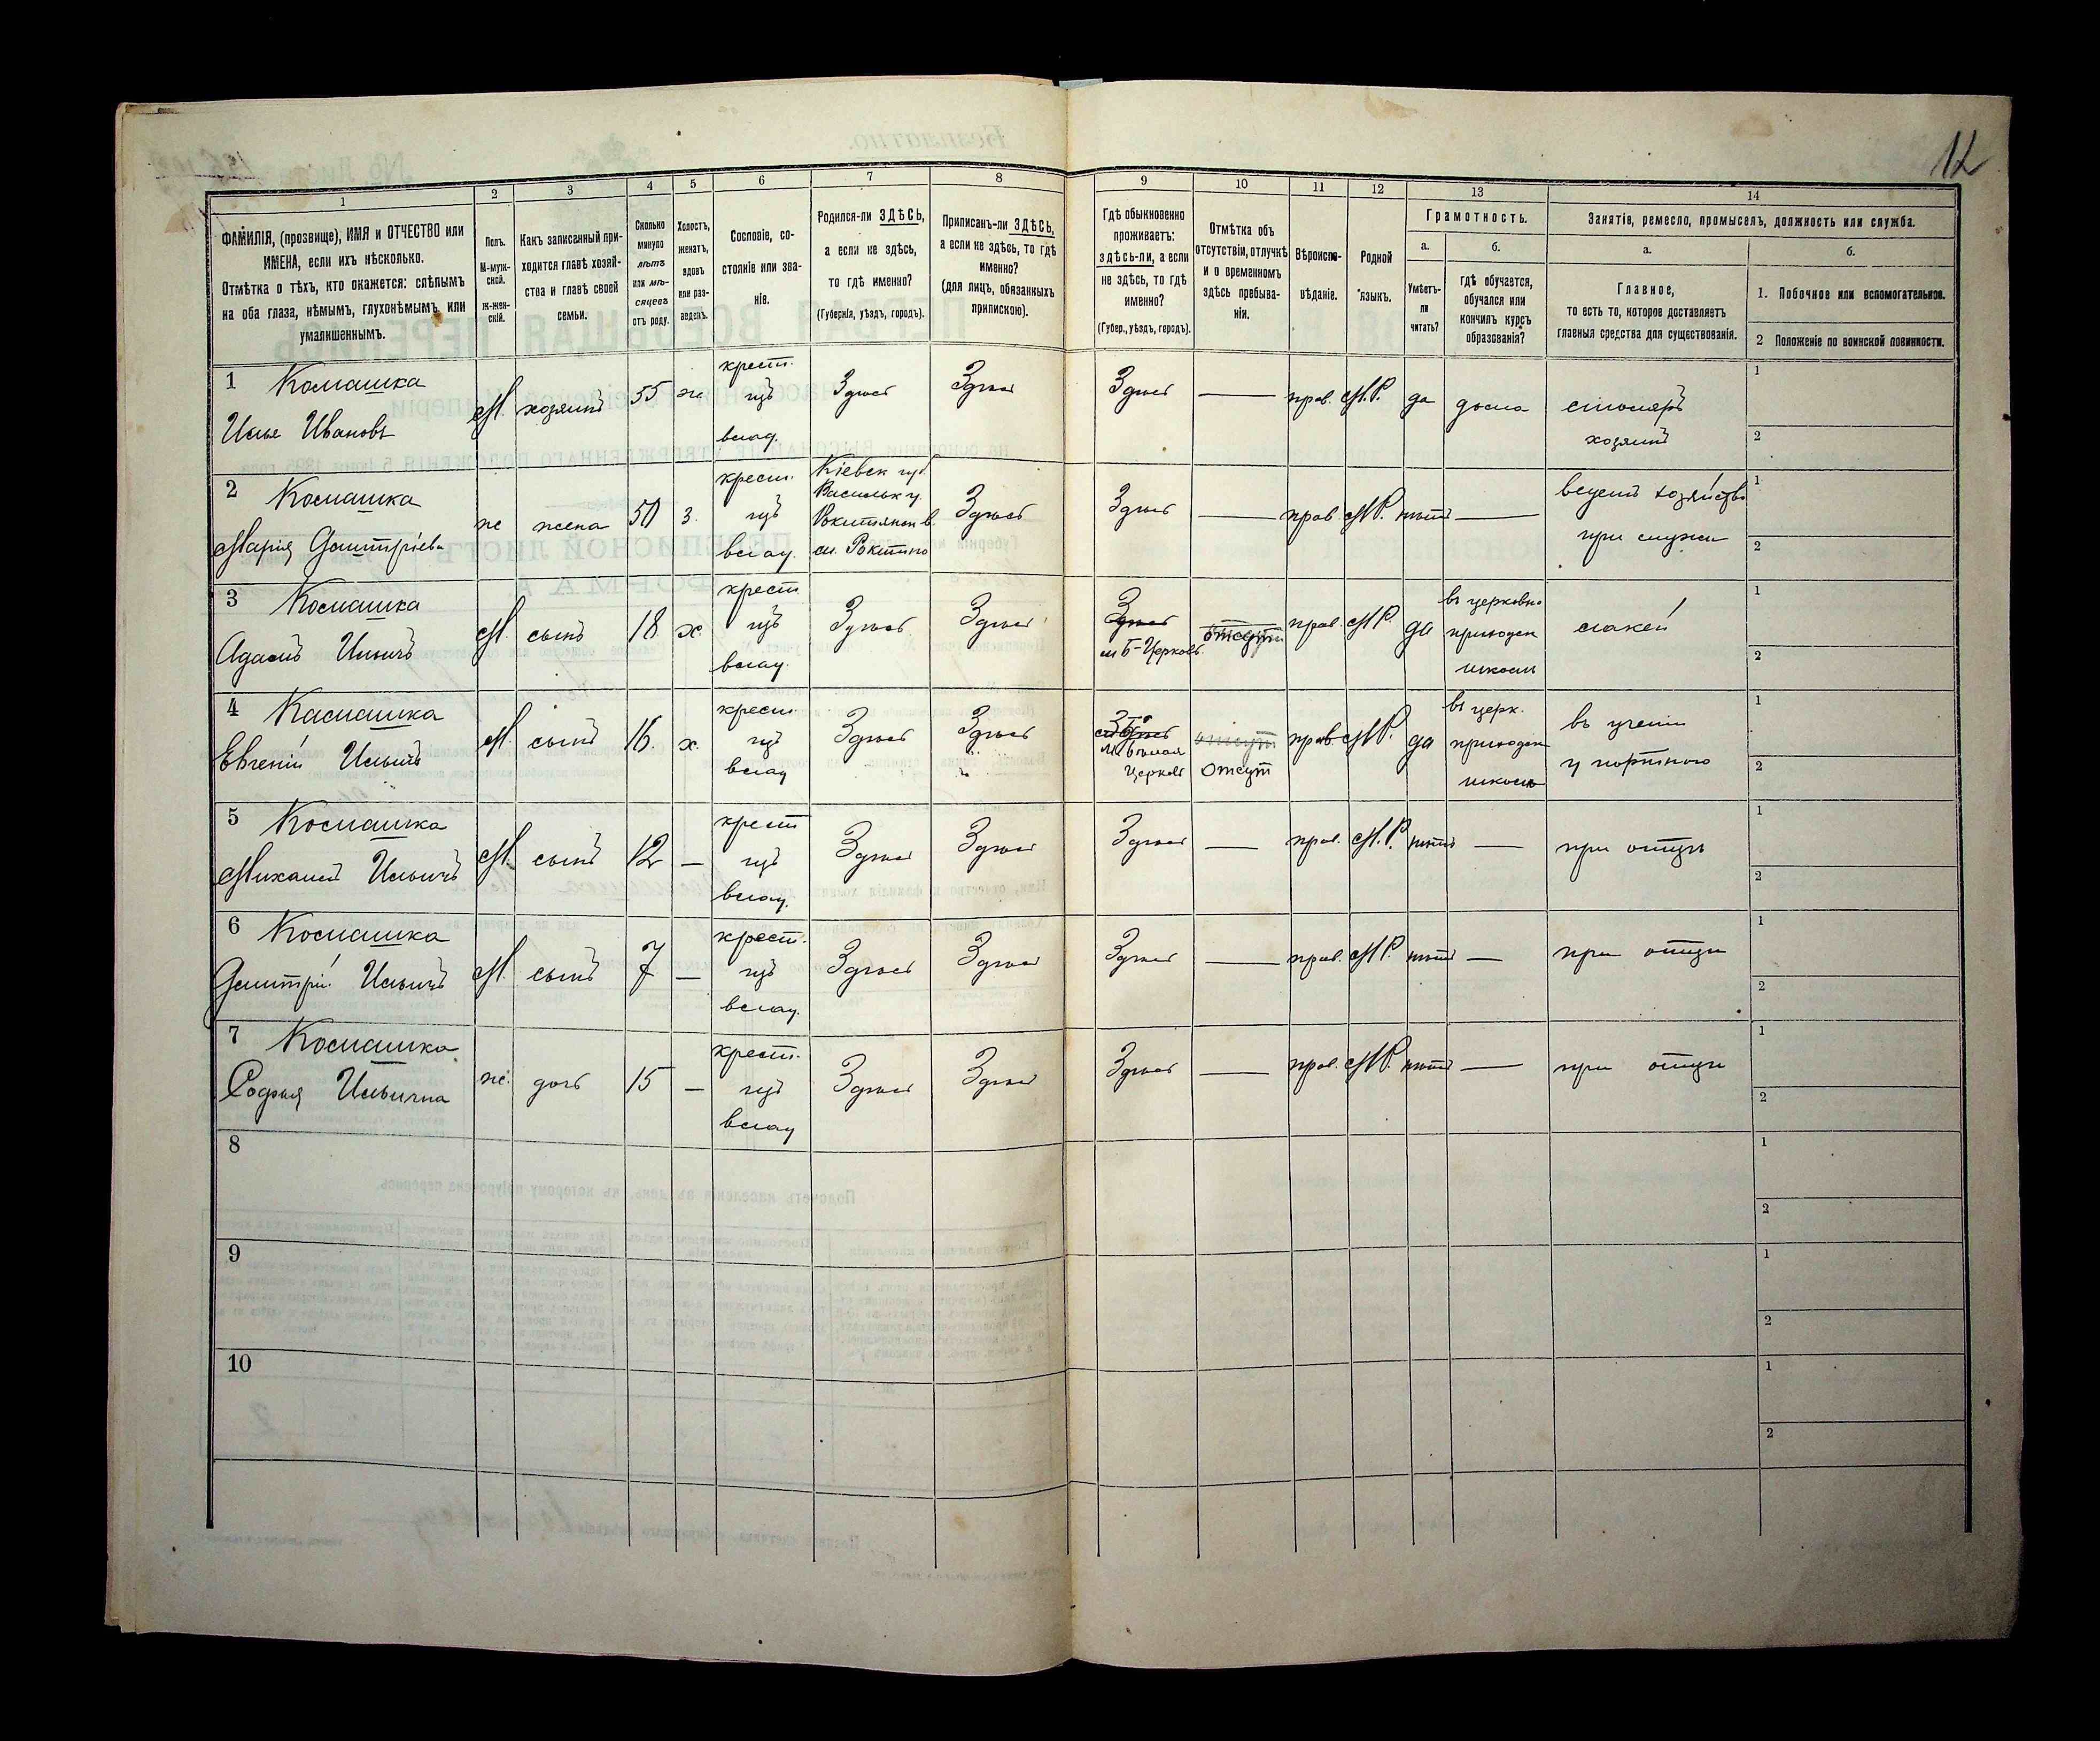 12
1 2 3 4 5 6 7 8 9 10 11 12 13 14
ФАМИЛІЯ, (прозвище), ИМЯ и ОТЧЕСТВО или
ИМЕНА, если ихъ нѣсколько.
Отмѣтка о тѣхъ, кто окажется: слѣпымъ
на оба глаза, нѣмымъ, глухонѣмымъ или
умалишеннымъ.
Полъ.
М-муж-
ской.
ж-жен-
скій.
Какъ записанный при-
ходится главѣ хозяй-
ства и главѣ своей
семьи.
Сколько
минуло
лѣтъ
или мѣ-
сяцевъ
отъ роду.
Холостъ,
женатъ,
вдовъ
или раз-
веденъ.
Сословіе, со-
стояніе или зва-
ніе.
Родился-ли ЗДѢСЬ,
а если не здѣсь,
то гдѣ именно?
(Губернія, уѣздъ, городъ).
Приписанъ-ли ЗДѢСЬ,
а если не здѣсь, то гдѣ
именно?
(для лицъ, обязанныхъ
припискою).
Гдѣ обыкновенно
проживаетъ:
здѣсь-ли, а если
не здѣсь, то гдѣ
именно?
(Губер., уѣздъ, городъ).
Отмѣтка объ
отсутствіи, отлучкѣ
и о временномъ
здѣсь пребыва-
ніи.
Вѣроиспо-
вѣданіе.
Родной
языкъ.
Грамотность.
а.
Умѣетъ-
ли
читать?
б.
гдѣ обучается,
обучался или
кончилъ курсъ
образованія?
Занятіе, ремесло, промыселъ, должность или служба.
а.
Главное,
то есть то, которое доставляетъ
главныя средства для существованія.
б.
1. Побочное или вспомогательное.
2 Положеніе по воинской повинности.
1 Космашка
Илья Ивановъ
М. хозяинъ 55 ж.
крест.
изъ
влад.
Здѣсь Здѣсь Здѣсь — прав. М.Р. да дома
столяръ
хозяинъ
1
2
2 Космашка
Марія Дмитріева
ж жена 50 з.
крест.
изъ
влад.
Кіевск губ.
Васильк у.
Рокитянск в.
м. Рокитно
Здѣсь Здѣсь — прав. М.Р. нѣтъ —
ведетъ хозяйство
при мужѣ
1
2
3 Космашка
Адамъ Ильичъ
М. сынъ 18 х.
крест.
изъ
влад.
Здѣсь Здѣсь
Здѣсь
м Б-Церковь
отсут
прав. М.Р. да
въ церковно
приходск
школѣ
лакей
1
2
4 Касмашка
Евгеній Ильичъ
М. сынъ 16. х.
крест.
изъ
влад
Здѣсь Здѣсь
Здѣсь
м Бѣлая
Церковь
отсут
отсут
прав. М.Р. да
въ церк.
приходск
школѣ
въ ученіи
у портного
1
2
5 Космашка
Михаилъ Ильичъ
М. сынъ 12 —
крест
изъ
влад.
Здѣсь Здѣсь Здѣсь — прав. М.Р. нѣтъ — при отцѣ
1
2
6 Космашка
Дмитрій Ильичъ
М. сынъ 7 —
крест.
изъ
влад.
Здѣсь Здѣсь Здѣсь — прав. М.Р. нѣтъ — при отцѣ
1
2
7 Космашка
Софья Ильична
ж. дочь 15 —
крест.
изъ
влад
Здѣсь Здѣсь Здѣсь — прав. М.Р. нѣтъ — при отцѣ
1
2
8
1
2
9
1
2
10
1
2